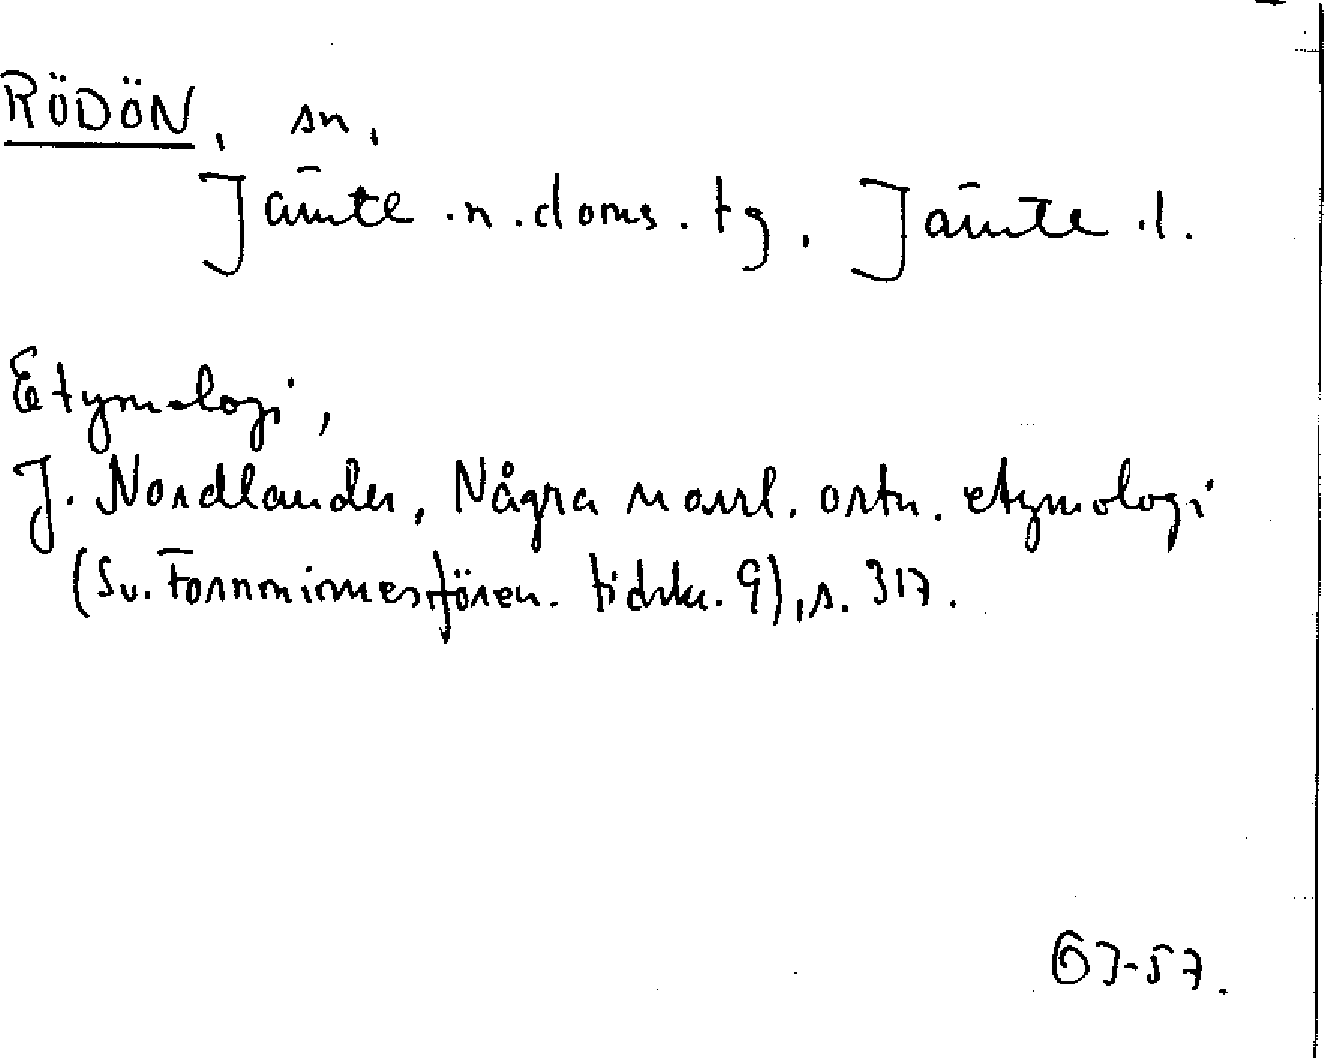 RÖDÖN, sn,
Jämte.n.doms.tg, Jämte.l.
Etymologi,
J. Nordlander, Några norrl. ortn. etymologi
(Sv. Fornminnesfören. tidskr. 9), s. 317.
ÖJ-57.